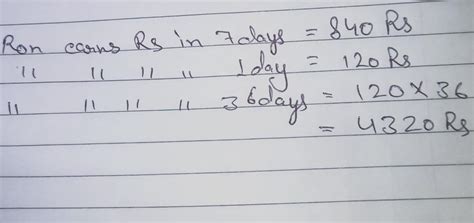 Ron earns Rs in 7days = 840 Rs
" " " " 1day = 120 Rs
" " " " 36days = 120 × 36
= 4320 Rs